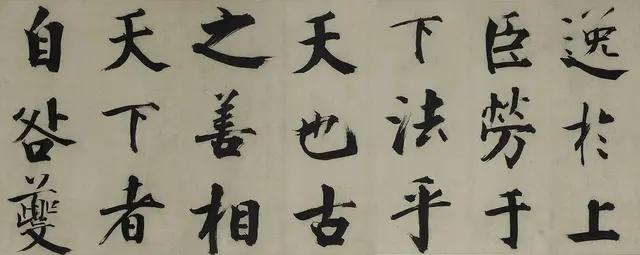 逸於上
臣勞于
下法乎
天也古
之善相
天下者
自咎夔